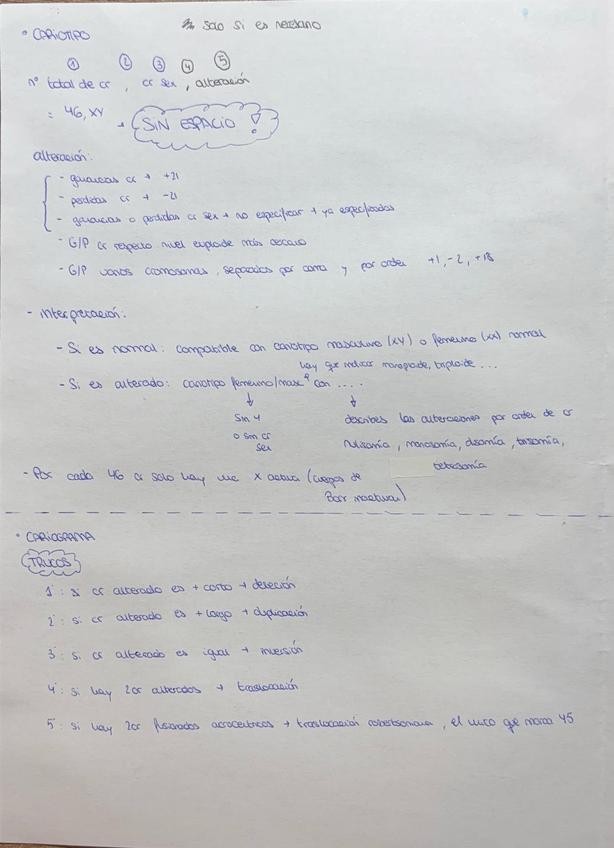 solo si es necesario
• CARIOTIPO
① ② ③ ④ ⑤
nº total de cr , cr sex , alteración
: 46, XY → SIN ESPACIO !
alteración:
- ganancias cr → +21
- perdidas cr → -21
- ganancias o perdidas cr sex → no especificar → ya especificados
- G/P cr respecto nivel euploide más cercano
- G/P varios cromosomas, separados por coma y por orden +1, -2, +18
- Interpretación:
- Si es normal: compatible con cariotipo masculino (XY) o femenino (XX) normal
hay que indicar monoploide, triploide ...
- Si es alterado: cariotipo femenino/mascº con ....
↓ ↓
Sin Y describes las alteraciones por orden de cr
o sin cr Nulisomía, monosomía, disomía, trisomía,
sex tetrasomía
- Por cada 46 cr solo hay una X activa (cuerpos de
Barr inactivas)
• CARIOGRAMA
TRUCOS
1º: si cr alterado es + corto → deleción
2º: si cr alterado es + largo → duplicación
3º: si cr alterado es igual → inversión
4º: si hay 2cr alterados → traslocación
5º: si hay 2cr fusionados acrocentricos → traslocación robertsoniana, el unico que marca 45